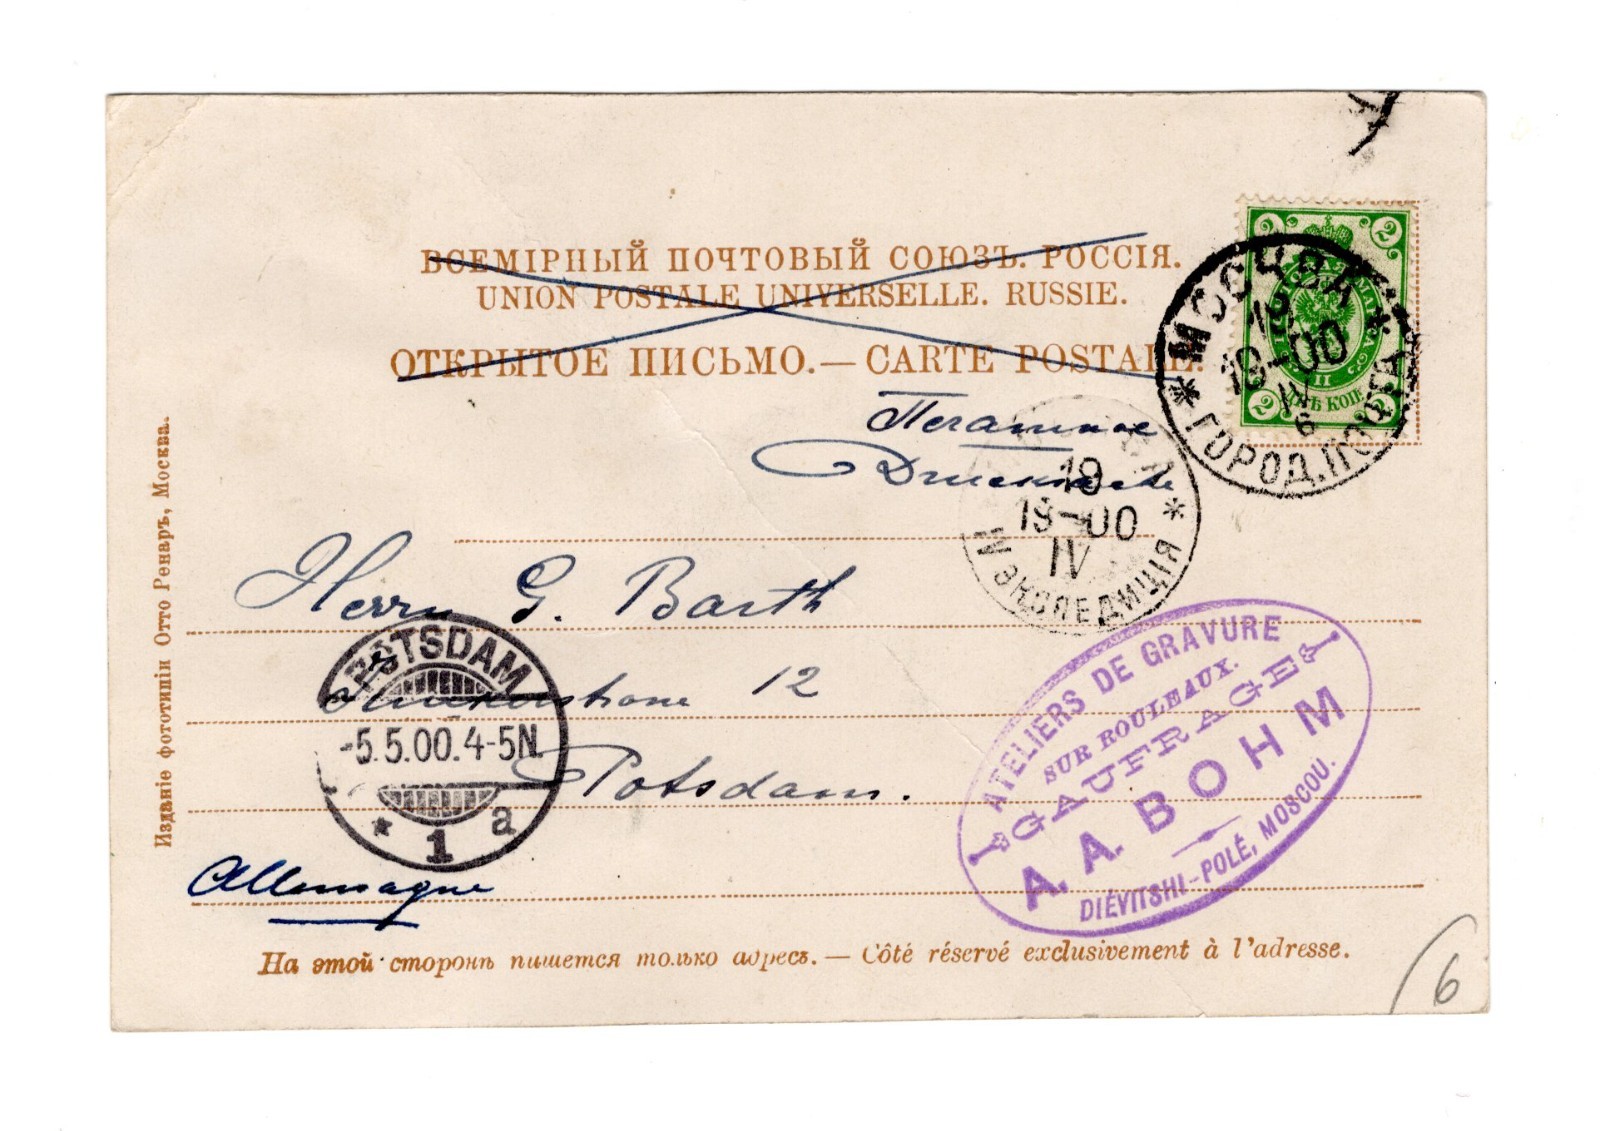 ВСЕМІРНЫЙ ПОЧТОВЫЙ СОЮЗЪ. РОССІЯ.
UNION POSTALE UNIVERSELLE. RUSSIE.
ОТКРЫТОЕ ПИСЬМО.—CARTE POSTALE.
2 2
2 2
МОСКВА
19
18-00
IV
6
* ГОРОД. ПОЧТА *
Печатное
Drucksache
19
18-00
IV
ЭКСПЕДИЦІЯ *
Herrn G. Barth
12
Potsdam.
Allemagne
POTSDAM
-5.5.00.4-5N
* 1 a
ATELIERS DE GRAVURE
SUR ROULEAUX.
GAUFRAGE
A. A. BOHM
DIÉVITSHI-POLÉ, MOSCOU.
На этой сторонѣ пишется только адресъ. — Côté réservé exclusivement à l'adresse.
Изданіе фототипіи Отто Ренаръ, Москва.
6